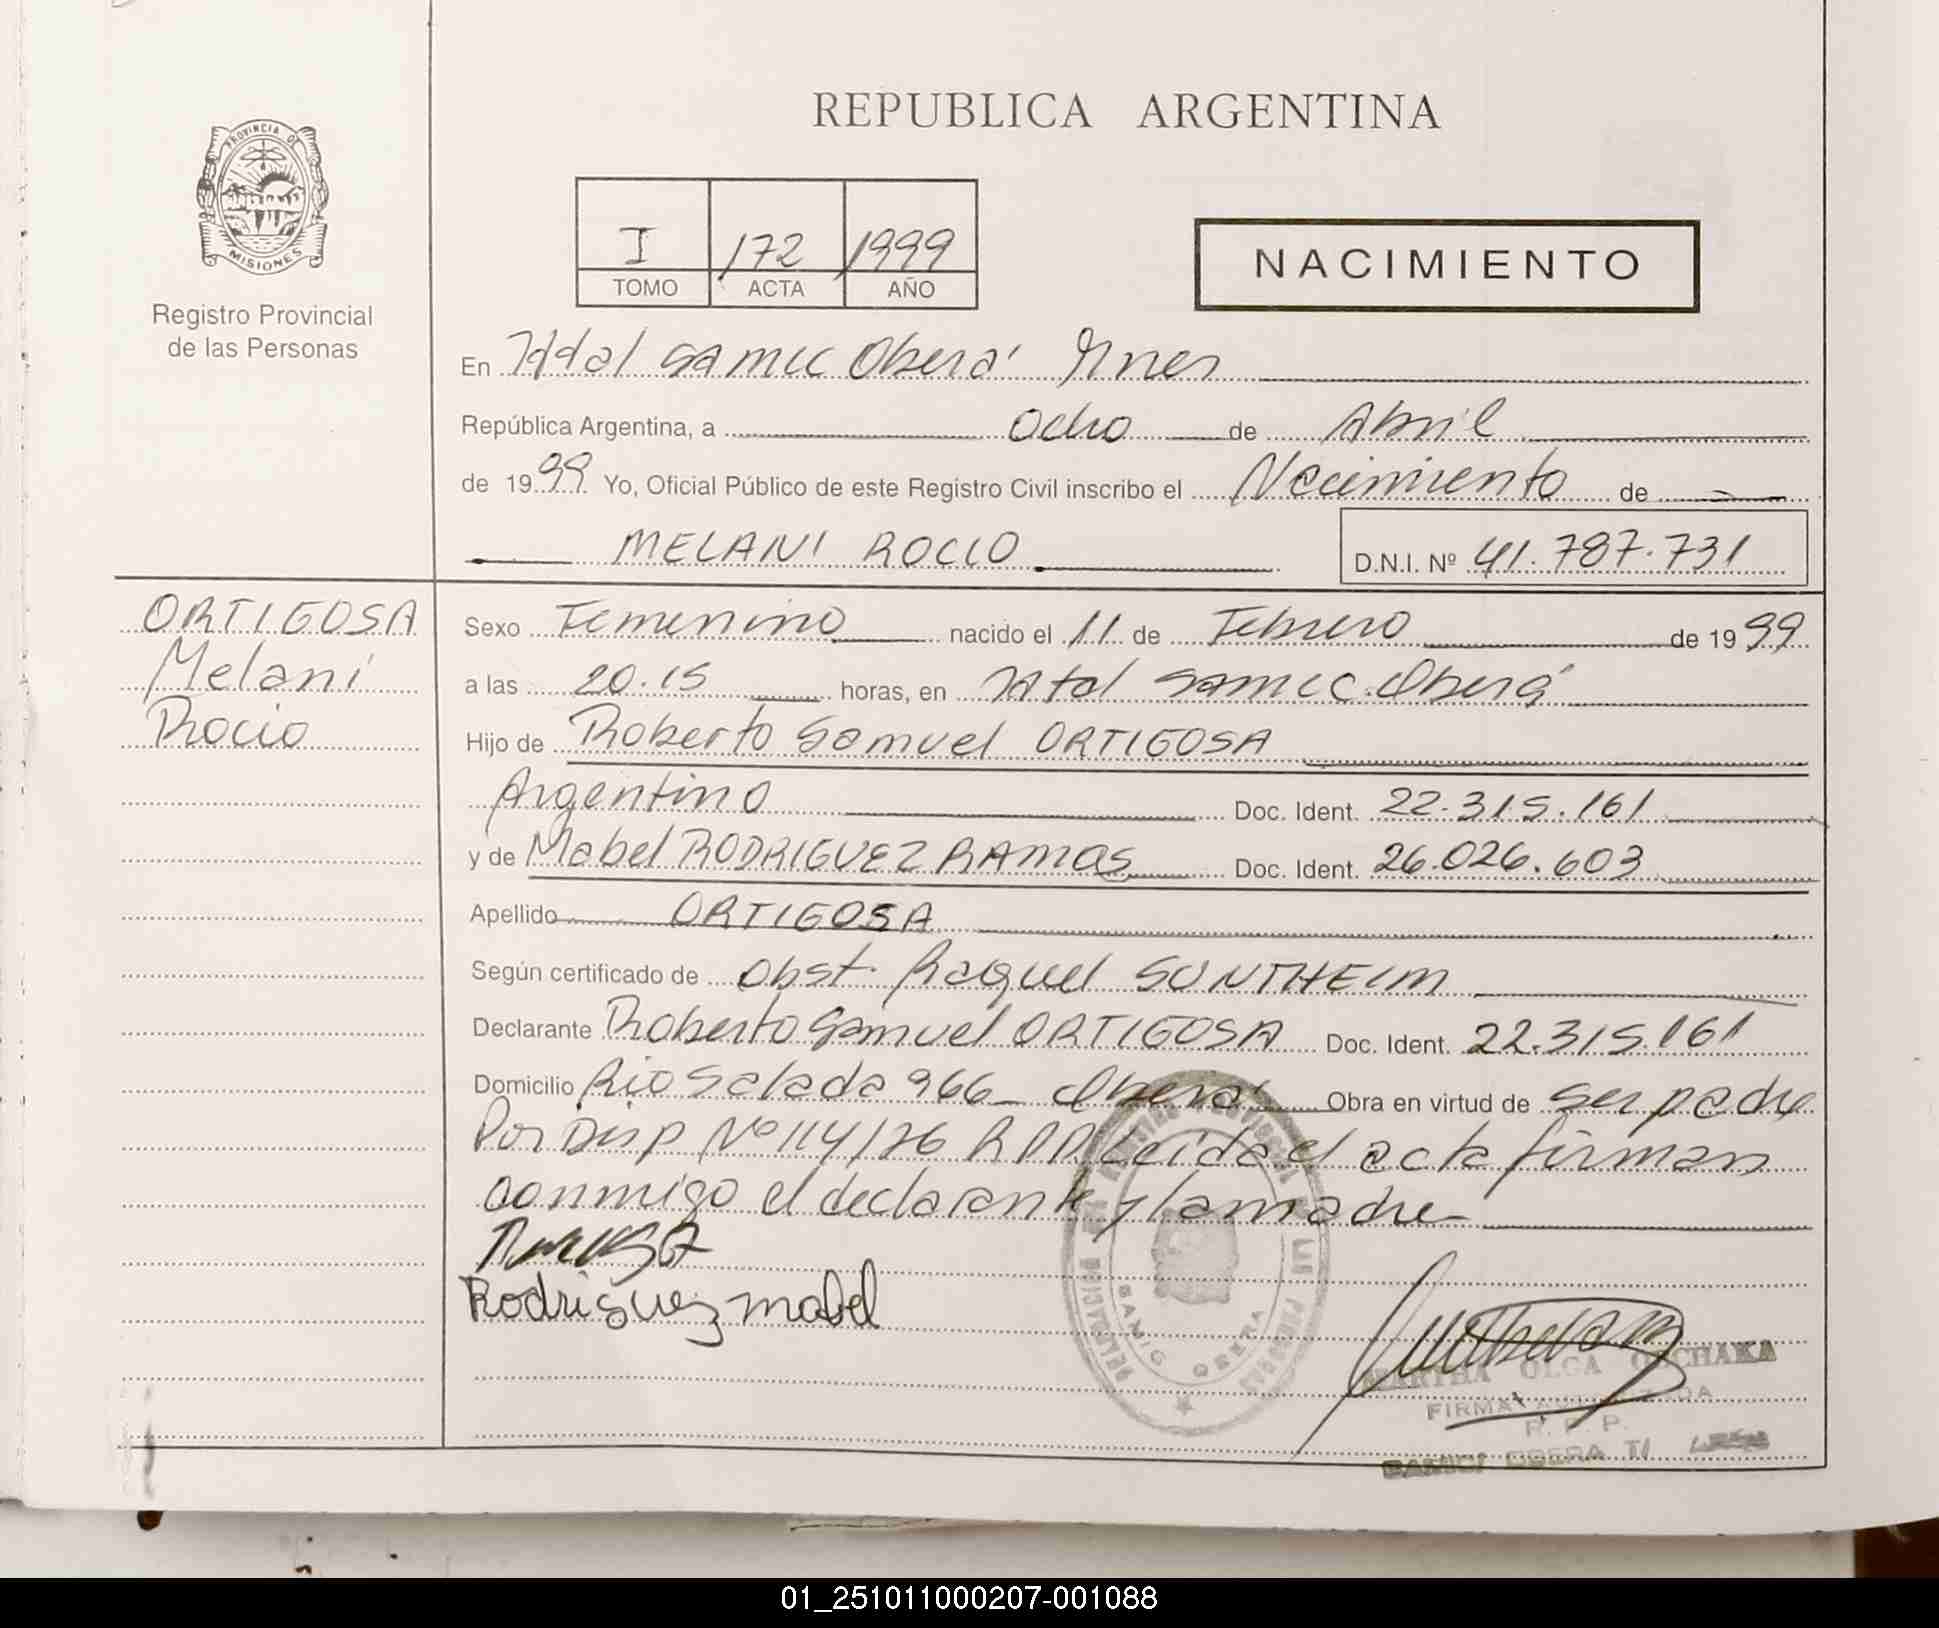 REPUBLICA ARGENTINA
PROVINCIA DE
MISIONES
Registro Provincial
de las Personas
I 172 1999
TOMO ACTA AÑO
NACIMIENTO
En Htal SAMIC Oberá Mnes
República Argentina, a Ocho de Abril
de 1999 Yo, Oficial Público de este Registro Civil inscribo el Nacimiento de
MELANI ROCIO D.N.I. Nº 41.787.731
ORTIGOSA
Melani
Rocio
Sexo Femenino nacido el 11 de Febrero de 1999
a las 20.15 horas, en Htal SAMIC Oberá
Hijo de Roberto Samuel ORTIGOSA
Argentino Doc. Ident. 22.315.161
y de Mabel RODRIGUEZ RAMOS Doc. Ident. 26.026.603
Apellido ORTIGOSA
Según certificado de Obst. Raquel SONTHEIM
Declarante Roberto Samuel ORTIGOSA Doc. Ident. 22.315.161
Domicilio Rio Salada 966 Oberá Obra en virtud de ser padre
Por Disp Nº 114/76 R.P.P. Leida el acta firman
conmigo el declarante y la madre
Rodriguez mabel
SAMIC OBERA
MARTHA OLGA
FIRMA AUTORIZADA
R. P. P.
SAMIC OBERA
01_251011000207-001088